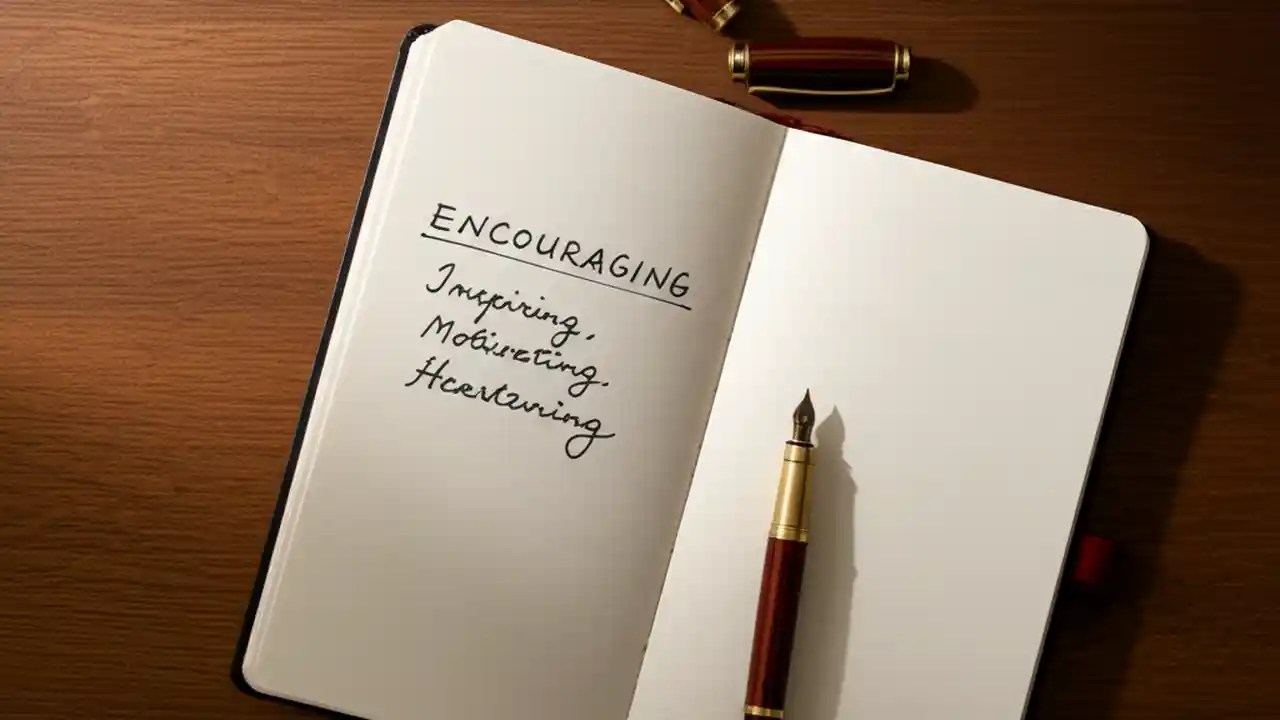 ENCOURAGING
Inspiring,
Motivating,
Heartening